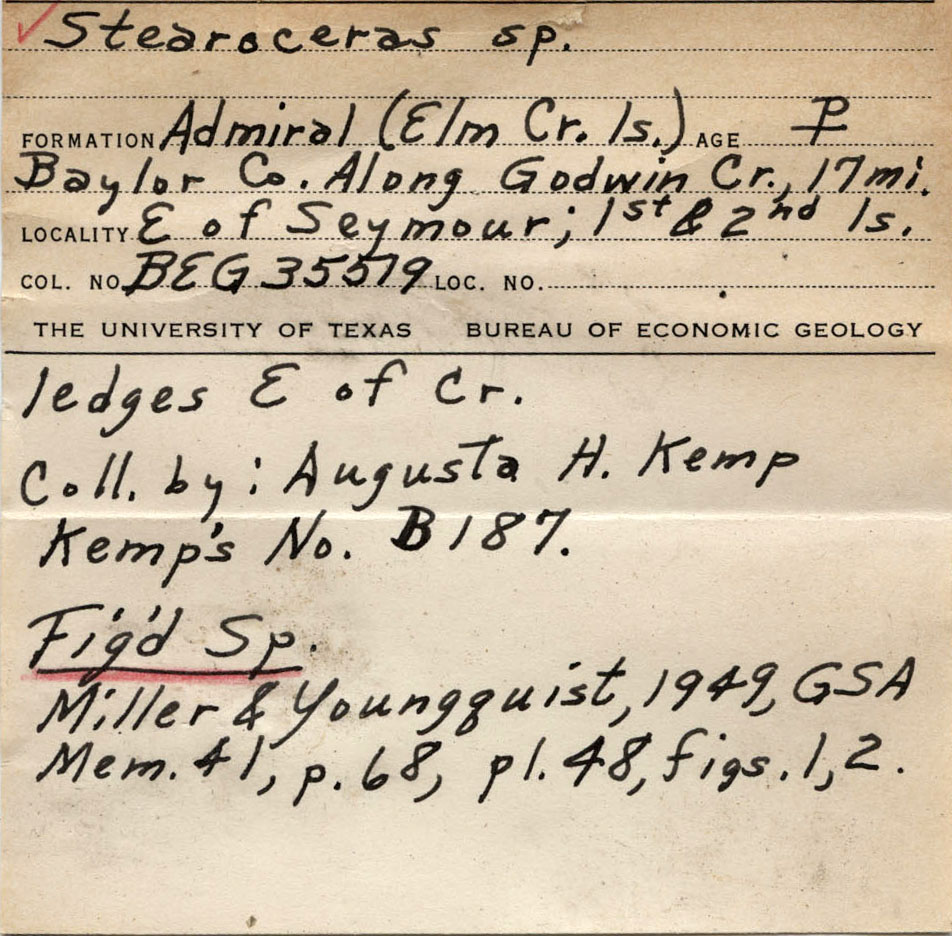 ✓ Stearoceras sp.
FORMATION Admiral (Elm Cr. ls.) AGE P
Baylor Co. Along Godwin Cr., 17 mi.
LOCALITY E of Seymour; 1st & 2nd ls.
COL. NO. BEG 35579 LOC. NO.
THE UNIVERSITY OF TEXAS BUREAU OF ECONOMIC GEOLOGY
ledges E of Cr.
Coll. by: Augusta H. Kemp
Kemp's No. B187.
Fig'd Sp.
Miller & Youngquist, 1949, GSA
Mem. 41, p. 68, pl. 48, figs. 1, 2.